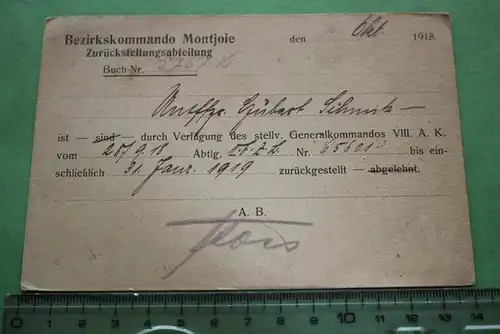 Bezirkskommando Montjoie
Zurückstellungsabteilung
den Okt. 1918.
Buch-Nr.
Hubert Schmitz
ist — sind — durch Verfügung des stellv. Generalkommandos VIII. A. K.
vom 20/9.18 Abtlg. Nr. 65601 bis ein-
schließlich 31. Janr. 1919 zurückgestellt — abgelehnt.
A. B.
0 1 2 3 4 5 6 7 8 9 10 11 12 13 14